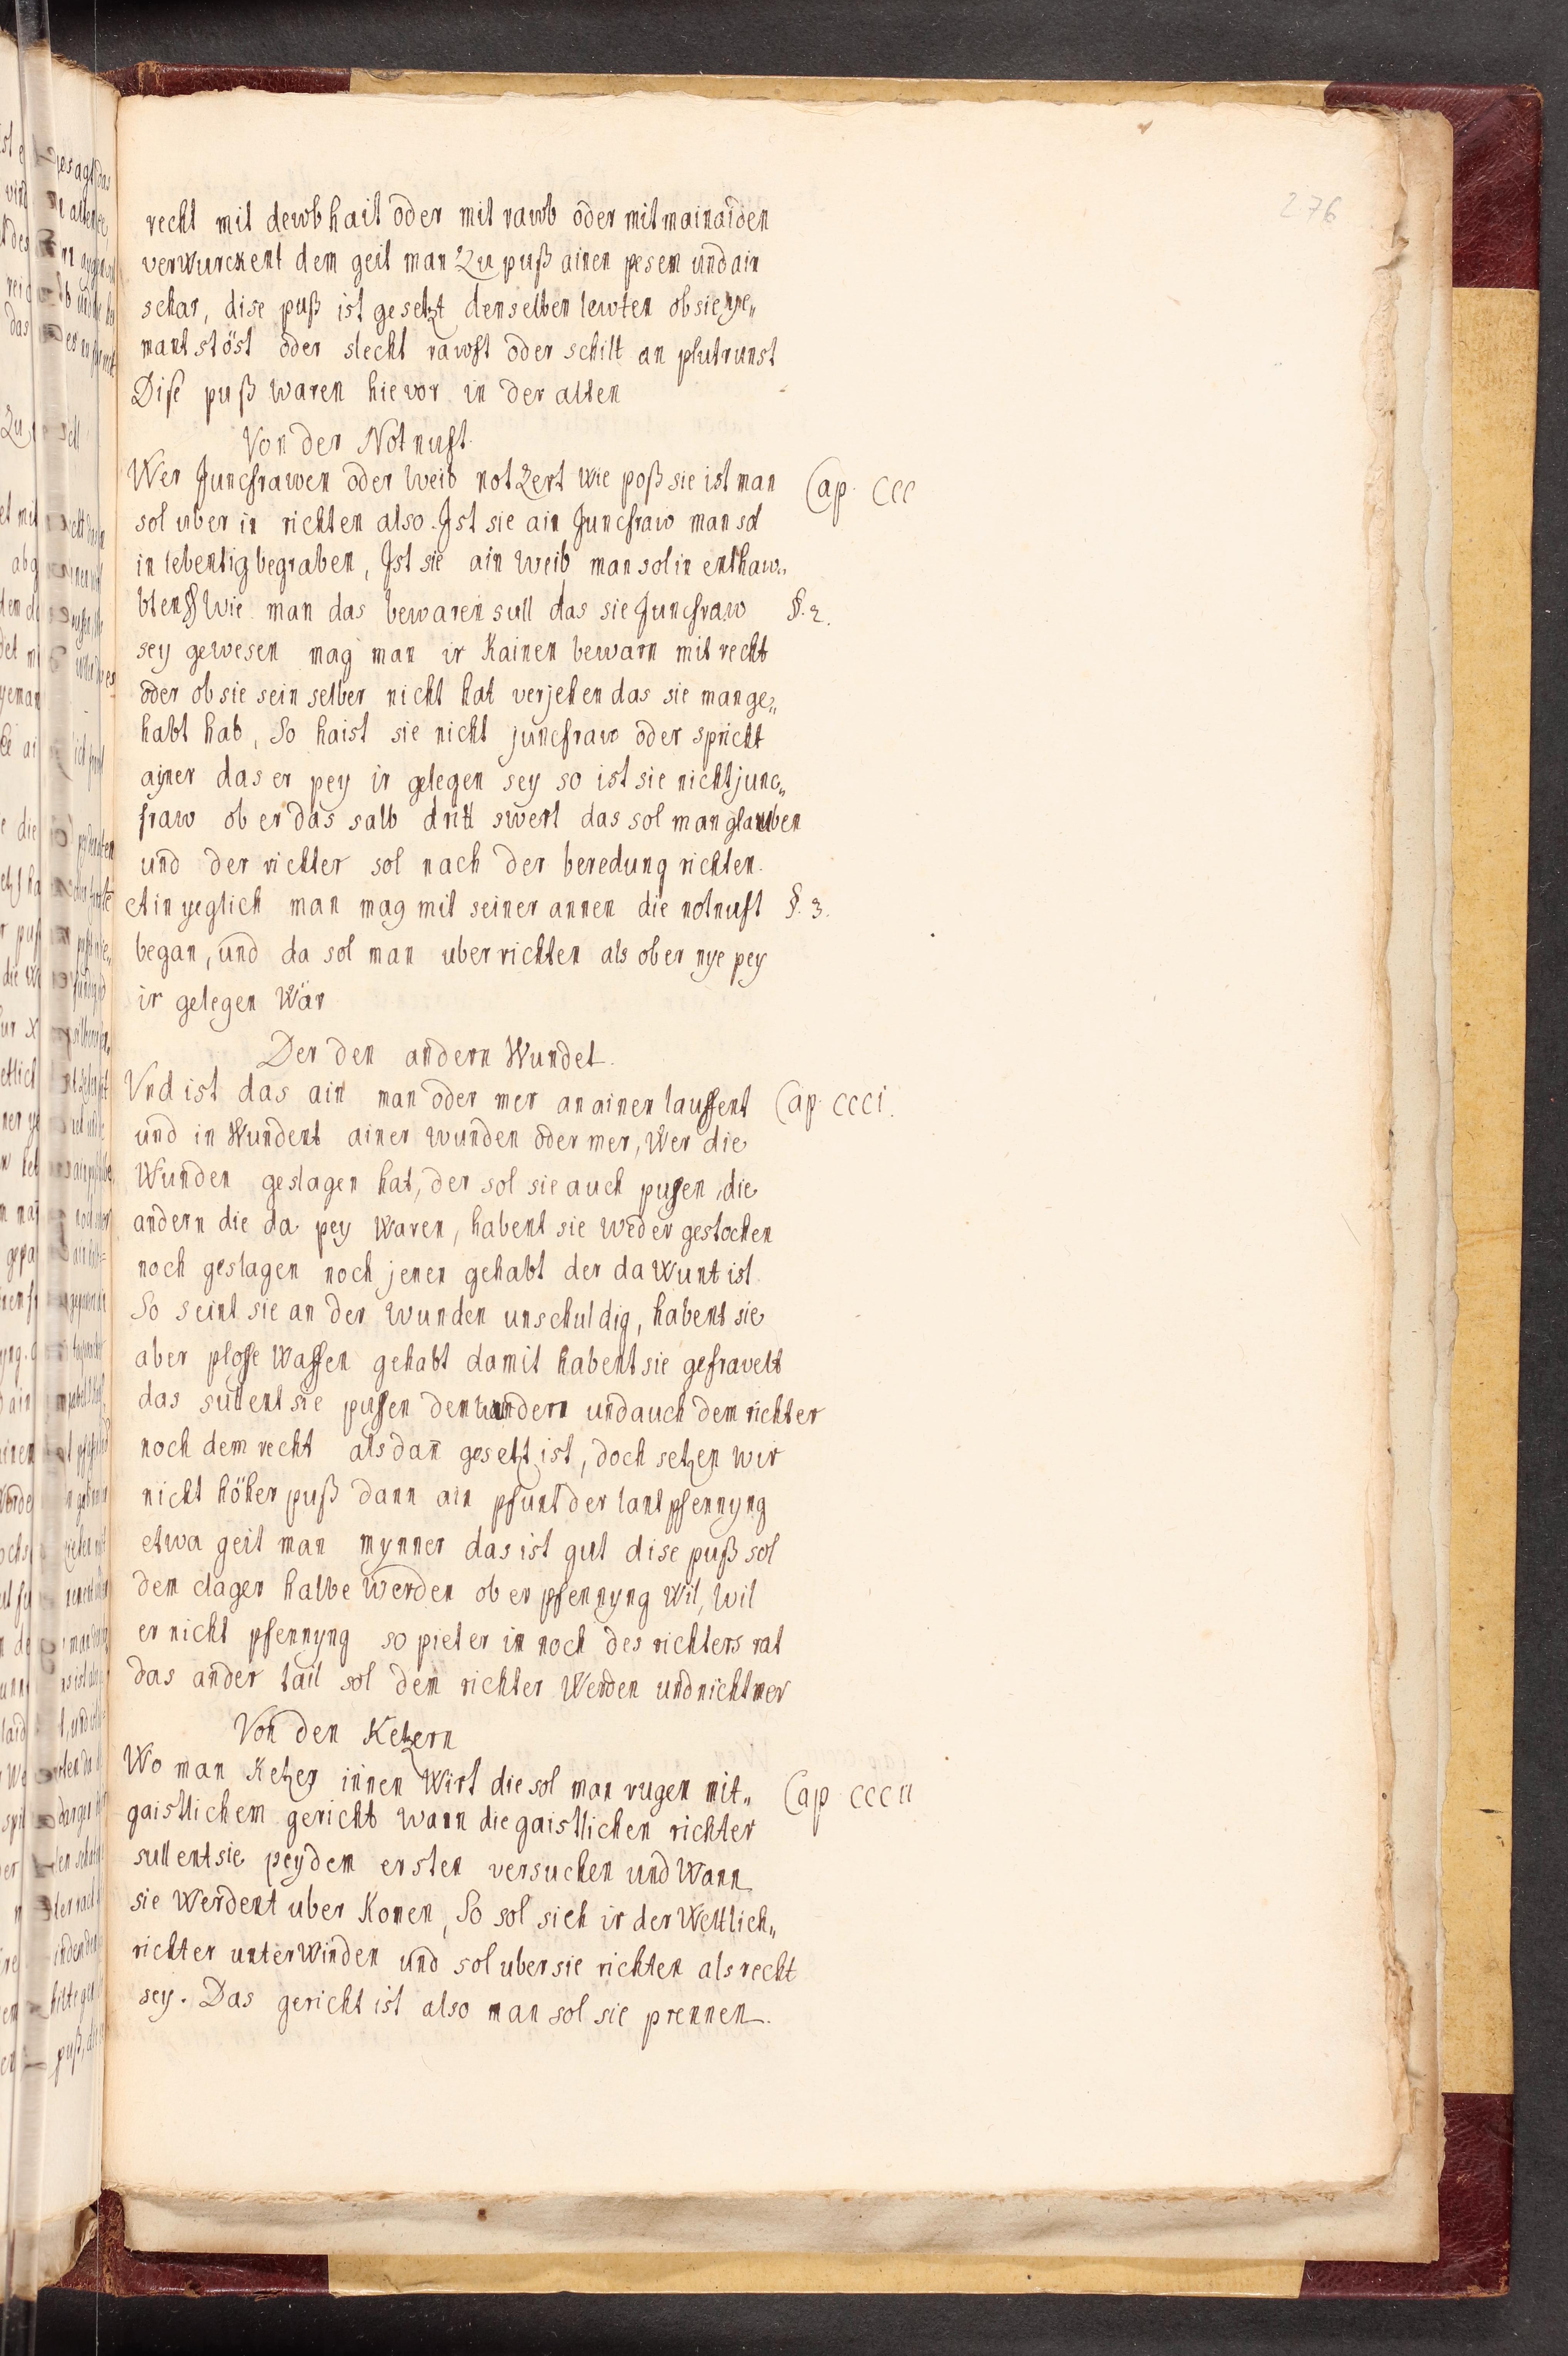 276
recht mit dewbhait oder mit rawb oder mit mainaiden
verwurckent dem geit man zu puß ainen pesem und ain
schar, dise puß ist gesetzt denselben lewten ob sie ye„
mant stöst oder slecht rawft oder schilt an plutrunst
Dise puß waren hie vor in der alten
Von der Notnuft
Wer Juncfrawen oder weib notzert wie poß sie ist man
Cap. CCC
sol uber in richten also. Ist sie ain Juncfraw man sol
in lebentig begraben, Ist sie ain weib man sol in enthaw„
bten § Wie man das bewaren sull das sie Juncfraw
§. 2.
sey gewesen mag man ir kainen bewarn mit recht
oder ob sie sein selber nicht hat verjehen das sie man ge„
habt hab, So haist sie nicht juncfraw oder spricht
ainer das er pey ir gelegen sey so ist sie nicht junc„
fraw ob er das salb dritt swert das sol man glauben
und der richter sol nach der beredung richten.
Ain yeglich man mag mit seiner annen die notnuft
§. 3.
began, und da sol man uber richten als ob er nye pey
ir gelegen wär
Der den andern Wundet.
Vnd ist das ain man oder mer an ainen lauffent
Cap. CCCI.
und in Wundent ainer wunden oder mer, Wer die
Wunden geslagen hat, der sol sie auch pussen, die
andern die da pey waren, habent sie weder gestochen
noch geslagen noch jenen gehabt der da Wunt ist.
So seint sie an der wunden unschuldig, habent sie
aber plosse Waffen gehabt damit habent sie gefravelt
das sullent sie pussen dem andern und auch dem richter
noch dem recht als dan̄ gesetzt ist, doch setzen wir
nicht höher puß dann ain pfunt der lantpfennyng
etwa geit man mynner das ist gut dise puß sol
dem clager halbe werden ob er pfennyng wil, wil
er nicht pfennyng so pieter in noch des richters rat
das ander tail sol dem richter Werden und nicht mer
Von den Ketzern
Wo man Ketzer innen Wirt die sol man rugen mit„
Cap. CCCII
gaistlichem gericht wann die gaistlichen richter
sullent sie pey dem ersten versuchen und Wann
sie Werdent uber Komen, So sol sich ir der Weltlich„
richter unterwinden und sol uber sie richten als recht
sey. Das gericht ist also man sol sie prennen.